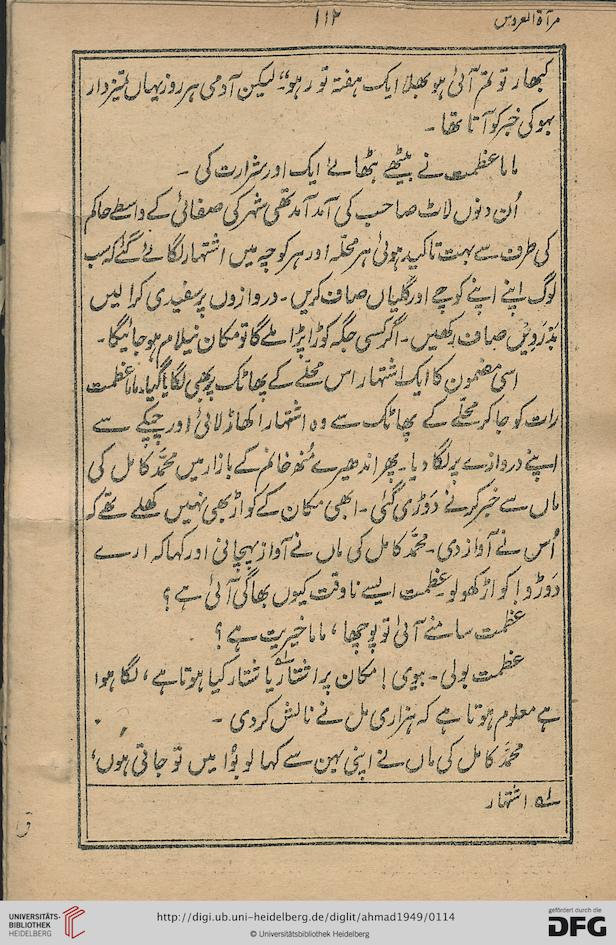 مرآۃ العروس
۱۱۲
کبھار تو تم آئی ہو بھلا ایک ہفتہ تو رہو“ لیکن آدمی ہر روز یہاں تمیزدار
بہو کی خبر کو آتا تھا ۔
ماما عظمت نے بیٹھے بٹھائے ایک اور شرارت کی ۔
اُن دنوں لاٹ صاحب کی آمد آمد تھی شہر کی صفائی کے واسطے حاکم
کی طرف سے بہت تاکید ہوئی ہر محلّہ اور ہر کوچہ میں اشتہار لگائے گئے کہ سب
لوگ اپنے اپنے کوچے اور گلیاں صاف کریں ۔ دروازوں پر سفیدی کرا لیں
بدرَرویں صاف رکھیں ۔ اگر کسی جگہ کوڑا پڑا ملے گا تو مکان نیلام ہو جائیگا ۔
اسی مضمون کا ایک اشتہار اس محلّے کے پھاٹک پر بھی لگایا گیا۔ ماما عظمت
رات کو جا کر محلّے کے پھاٹک سے وہ اشتہار اکھاڑ لائی اور چپکے سے
اپنے دروازے پر لگا دیا ۔ پھر اندھیرے مُنھ خانم کے بازار میں محمّد کامل کی
ماں سے خبر کرنے دَوڑی گئی ۔ ابھی مکان کے کواڑ بھی نہیں کھلے تھے کہ
اُس نے آواز دی ۔ محمّد کامل کی ماں نے آواز پہچانی اور کہا کہ ارے
دَوڑو! کواڑ کھولو۔ عظمت ایسے ناوقت کیوں بھاگی آئی ہے ؟
عظمت سامنے آئی تو پوچھا ، ماما خیریت ہے ؟
عظمت بولی ۔ بیوی ! مکان پر اشتار یا شتار کیا ہوتا ہے ، لگا ہوا
ہے معلوم ہوتا ہے کہ ہزاری مل نے نالش کر دی ۔
محمّد کامل کی ماں نے اپنی بہن سے کہا لو بُوا میں تو جاتی ہوں ،
لہ اشتہار
UNIVERSITÄTS-
BIBLIOTHEK
HEIDELBERG
http://digi.ub.uni-heidelberg.de/diglit/ahmad1949/0114
© Universitätsbibliothek Heidelberg
gefördert durch die
DFG